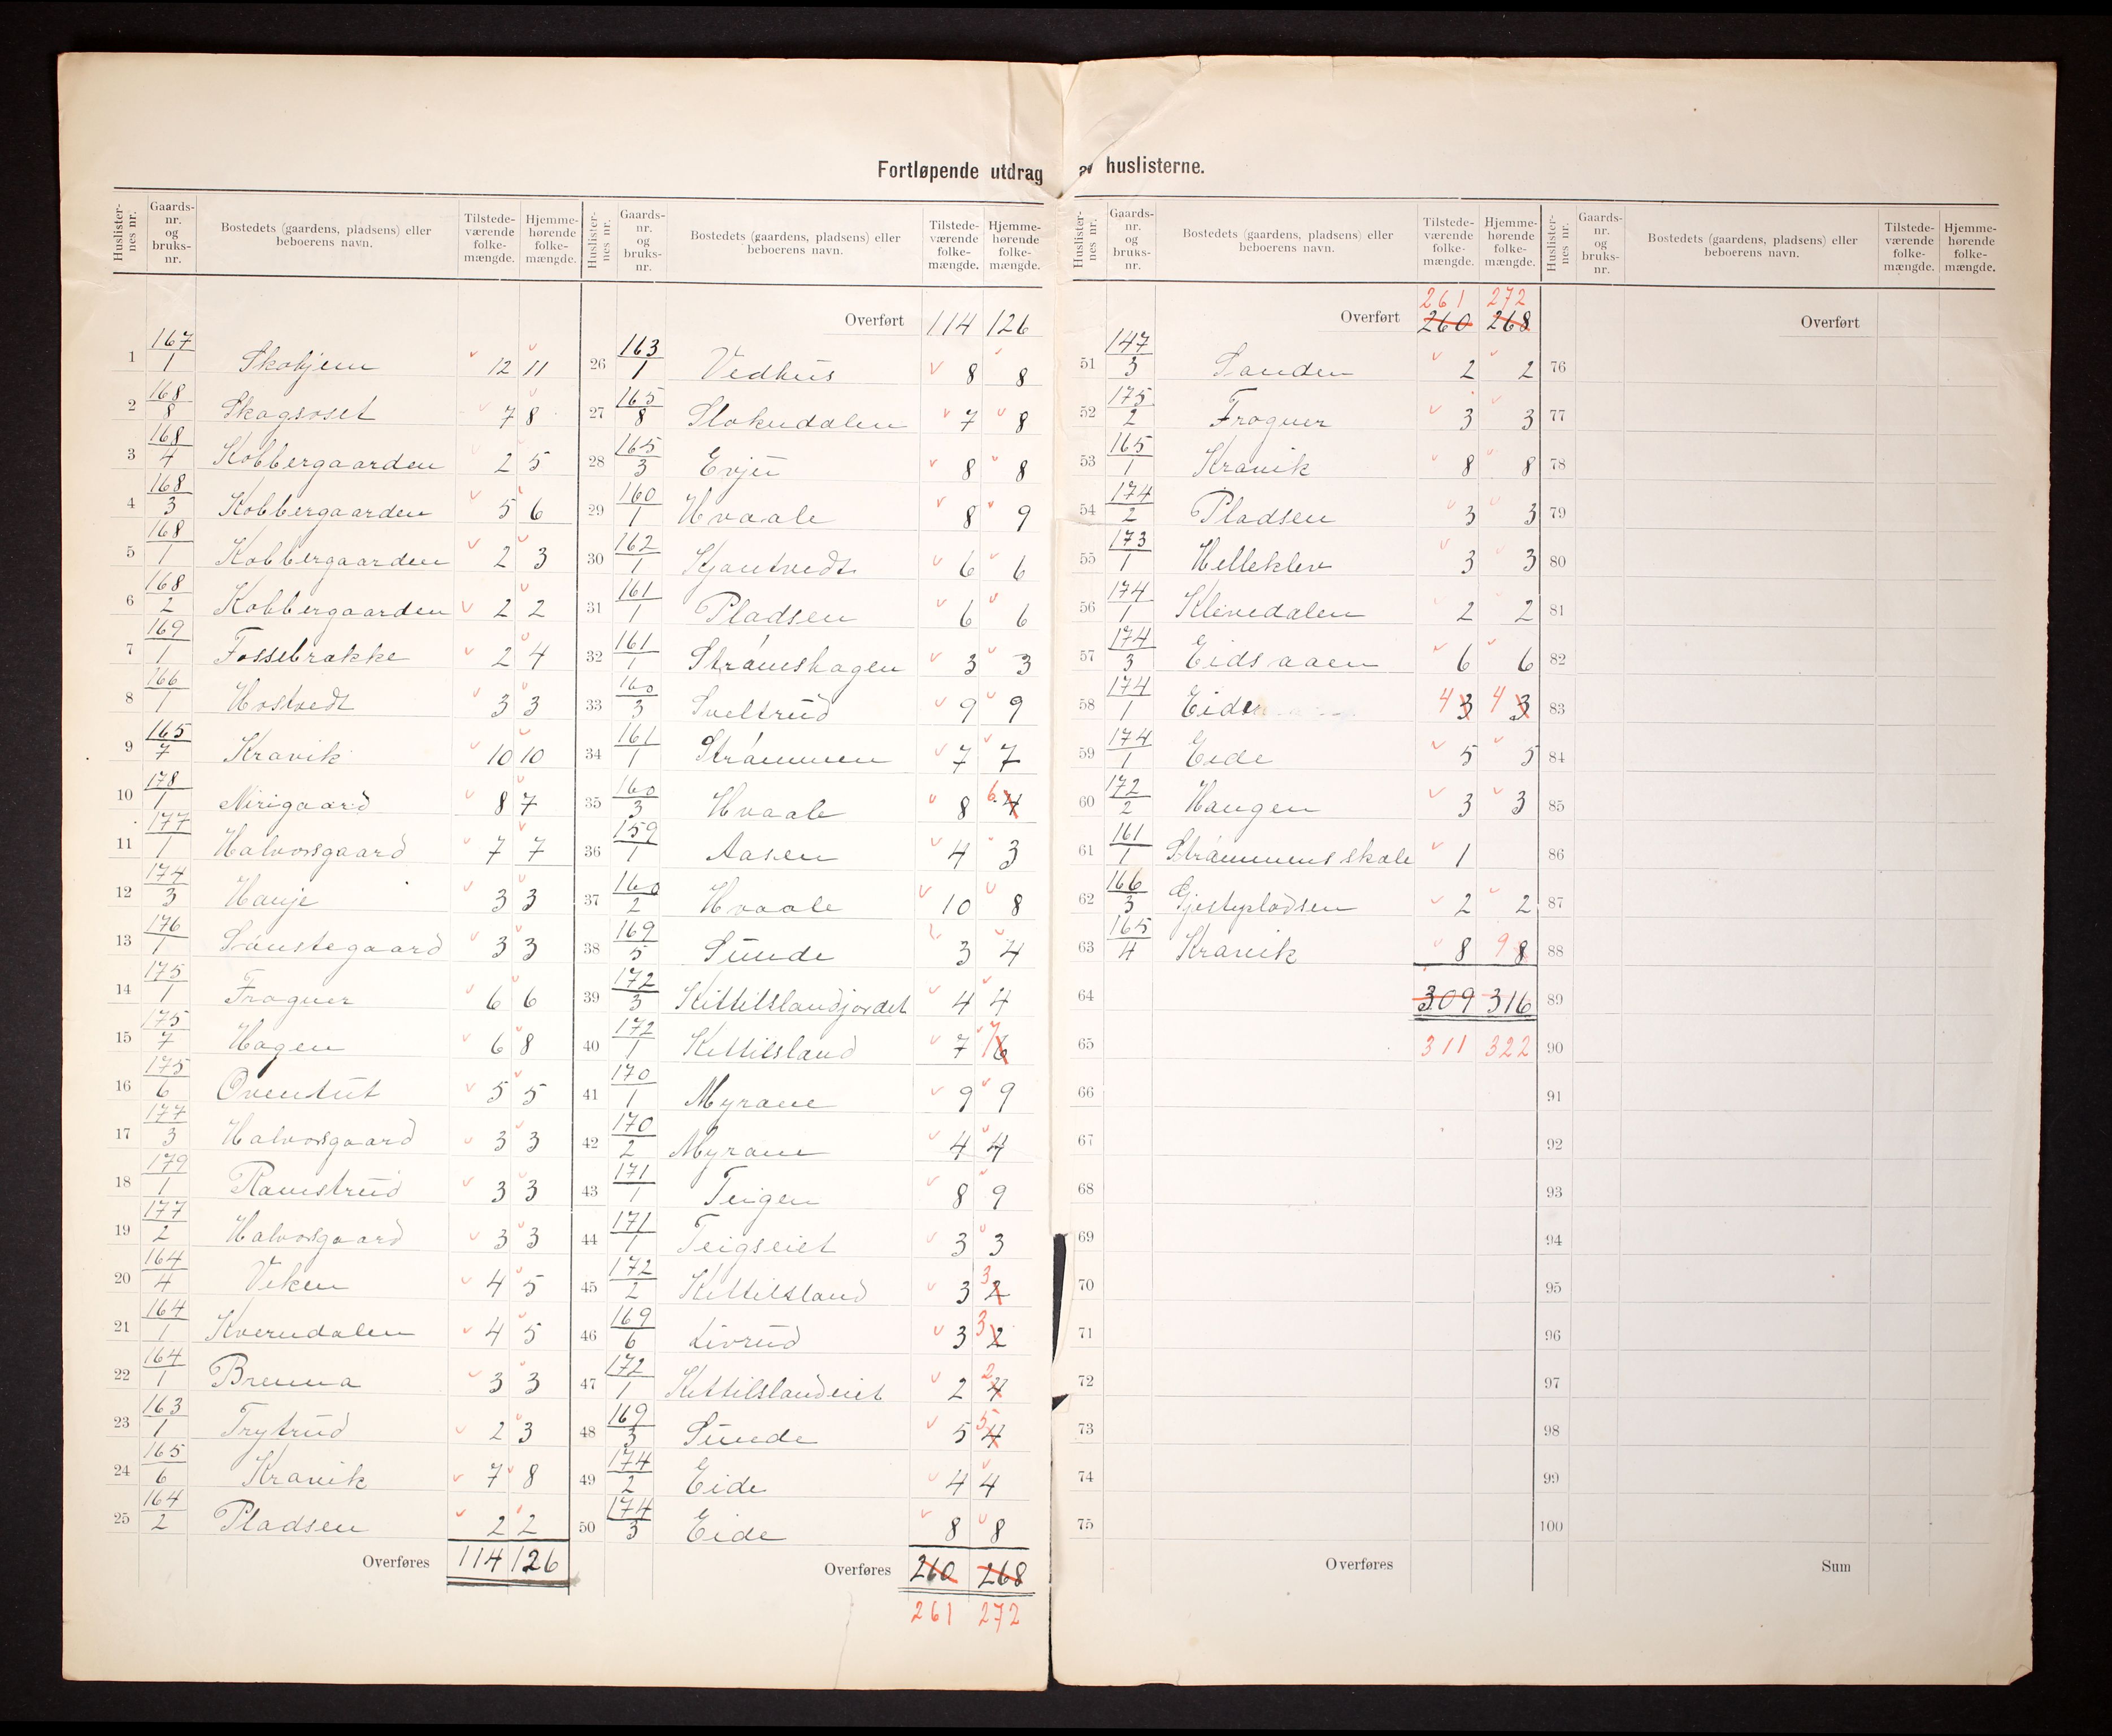 Fortløpende utdrag av huslisterne.
Huslister-nes nr. Gaards-nr. og bruks-nr. Bostedets (gaardens, pladsens) eller beboerens navn. Tilstede-værende folke-mængde. Hjemme-hørende folke-mængde.
1 167/1 Skohjem 12 11
2 168/8 Skogsoset 7 8
3 168/4 Kobbergaarden 2 5
4 168/3 Kobbergaarden 5 6
5 168/1 Kobbergaarden 2 3
6 168/2 Kobbergaarden 2 2
7 169/1 Fossebrække 2 4
8 166/1 Hostvedt 3 3
9 165/7 Kravik 10 10
10 178/1 Nirigaard 8 7
11 177/1 Halvorsgaard 7 7
12 174/3 Hauje 3 3
13 176/1 Sønstegaard 3 3
14 175/1 Frogner 6 6
15 175/7 Hagen 6 8
16 175/6 Ovenstut 5 5
17 177/3 Halvorsgaard 3 3
18 179/1 Ramstrud 3 3
19 177/2 Halvorsgaard 3 3
20 164/4 Viken 4 5
21 164/1 Kverndalen 4 5
22 164/1 Brenna 3 3
23 163/1 Trytrud 2 3
24 165/6 Kravik 7 8
25 164/2 Pladsen 2 2
Overføres 114 126
Huslister-nes nr. Gaards-nr. og bruks-nr. Bostedets (gaardens, pladsens) eller beboerens navn. Tilstede-værende folke-mængde. Hjemme-hørende folke-mængde.
Overført 114 126
26 163/1 Vedhus 8 8
27 165/8 Slokudalen 7 8
28 165/3 Evju 8 8
29 160/1 Hvaale 8 9
30 162/1 Kjøntvedt 6 6
31 161/1 Pladsen 6 6
32 161/1 Strømshagen 3 3
33 160/3 Sveltrud 9 9
34 161/1 Strømmen 7 7
35 160/3 Hvaale 8 6 4
36 159/1 Aasen 4 3
37 160/2 Hvaale 10 8
38 169/5 Sunde 3 4
39 172/3 Kittilslandjordet 4 4
40 172/1 Kittilsland 7 7 6
41 170/1 Myrane 9 9
42 170/2 Myrane 4 4
43 171/1 Teigen 8 9
44 171/1 Teigseiet 3 3
45 172/2 Kittilsland 3 3 2
46 169/6 Livrud 3 3 2
47 172/1 Kittilslandeiet 2 2 4
48 169/3 Sunde 5 5 4
49 174/2 Eide 4 4
50 174/3 Eide 8 8
Overføres 260 268
261 272
Huslister-nes nr. Gaards-nr. og bruks-nr. Bostedets (gaardens, pladsens) eller beboerens navn. Tilstede-værende folke-mængde. Hjemme-hørende folke-mængde.
261 272
Overført 260 268
51 147/3 Sanden 2 2
52 175/2 Frogner 3 3
53 165/1 Kravik 8 8
54 174/2 Pladsen 3 3
55 173/1 Helleklev 3 3
56 174/1 Klevedalen 2 2
57 174/3 Eidsaaen 6 6
58 174/1 Eiden 4 3 4 3
59 174/1 Eide 5 5
60 172/2 Haugen 3 3
61 161/1 Strømmens skole 1
62 166/3 Gjestepladsen 2 2
63 165/4 Kravik 8 9 8
64 309 316
65 311 322
66
67
68
69
70
71
72
73
74
75
Overføres
Huslister-nes nr. Gaards-nr. og bruks-nr. Bostedets (gaardens, pladsens) eller beboerens navn. Tilstede-værende folke-mængde. Hjemme-hørende folke-mængde.
Overført
76
77
78
79
80
81
82
83
84
85
86
87
88
89
90
91
92
93
94
95
96
97
98
99
100
Sum